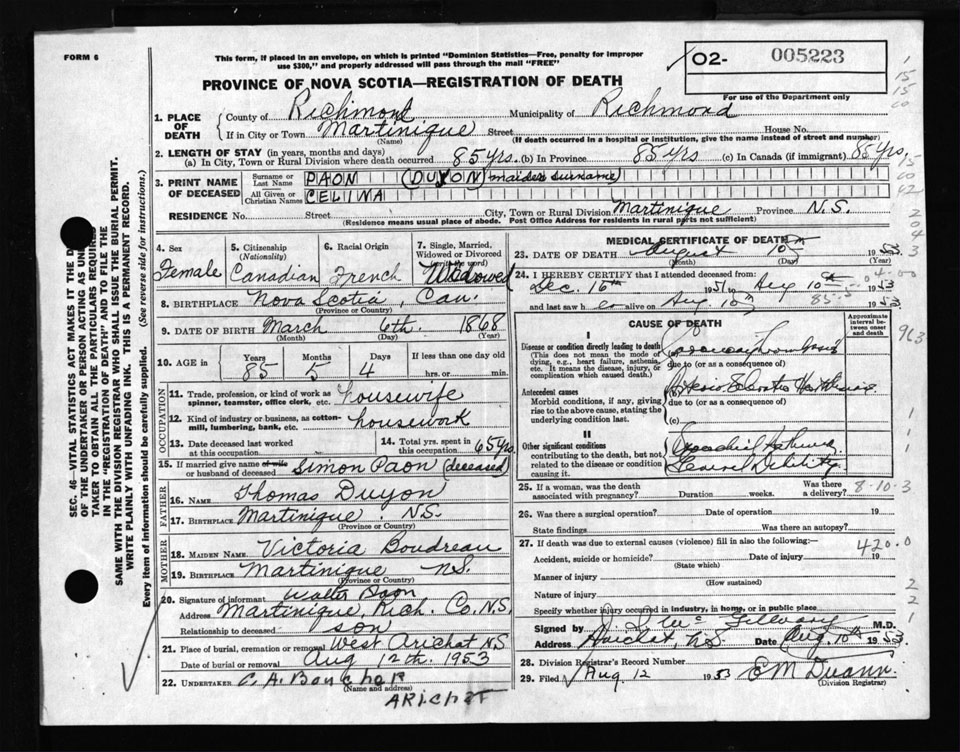 FORM 6
This form, if placed in an envelope, on which is printed "Dominion Statistics—Free, penalty for improper
use $300," and properly addressed will pass through the mail "FREE"
O2- 005223
For use of the Department only
PROVINCE OF NOVA SCOTIA—REGISTRATION OF DEATH
1. PLACE OF DEATH
County of Richmond Municipality of Richmond
If in City or Town Martinique Street House No.
(Name) (If death occurred in a hospital or institution, give the name instead of street and number)
2. LENGTH OF STAY (in years, months and days)
(a) In City, Town or Rural Division where death occurred 85 yrs. (b) In Province 85 yrs (c) In Canada (if immigrant) 85 yrs,
3. PRINT NAME OF DECEASED
Surname or Last Name PAON (DUYON) maiden surname)
All Given or Christian Names CELINA
RESIDENCE No. Street City, Town or Rural Division Martinique Province N.S.
(Residence means usual place of abode. Post Office Address for residents in rural parts not sufficient)
4. Sex Female
5. Citizenship (Nationality) Canadian
6. Racial Origin French
7. Single, Married, Widowed or Divorced (write the word) Widowed
8. BIRTHPLACE Nova Scotia, Can.
(Province or Country)
9. DATE OF BIRTH March 6th. 1868
(Month) (Day) (Year)
10. AGE in Years 85 Months 5 Days 4 If less than one day old
hrs. or min.
OCCUPATION
11. Trade, profession, or kind of work as spinner, teamster, office clerk, etc. Housewife
12. Kind of industry or business, as cotton-mill, lumbering, bank, etc. housework
13. Date deceased last worked at this occupation
14. Total yrs. spent in this occupation 65 yrs.
15. If married give name of wife or husband of deceased Simon Paon (deceased)
FATHER
16. NAME Thomas Duyon
17. BIRTHPLACE Martinique N.S.
(Province or Country)
MOTHER
18. MAIDEN NAME Victoria Boudreau
19. BIRTHPLACE Martinique N.S.
(Province or Country)
20. Signature of informant Walter Paon
Address Martinique, Rich. Co. N.S.
Relationship to deceased son
21. Place of burial, cremation or removal West Arichat N.S
Date of burial or removal Aug 12th. 1953
22. UNDERTAKER C. A. Boucher
(Name and address)
ARICHAT
MEDICAL CERTIFICATE OF DEATH
23. DATE OF DEATH August 10th 1953
(Month) (Day) (Year)
24. I HEREBY CERTIFY that I attended deceased from:
Dec. 16th 1951 to Aug 10th 1953
and last saw h er alive on Aug. 10th 1953
CAUSE OF DEATH
Approximate interval between onset and death
I
Disease or condition directly leading to death
(This does not mean the mode of dying, e.g., heart failure, asthenia, etc. It means the disease, injury or complication which caused death.)
(a) Coronary Thrombosis
due to (or as a consequence of)
Antecedent causes
Morbid conditions, if any, giving rise to the above cause, stating the underlying condition last.
(b)
due to (or as a consequence of)
(c)
II
Other significant conditions
contributing to the death, but not related to the disease or condition causing it.
General Debility
25. If a woman, was the death associated with pregnancy? Duration weeks. Was there a delivery?
8-10-3
26. Was there a surgical operation? Date of operation 19
State findings Was there an autopsy?
27. If death was due to external causes (violence) fill in also the following:
420.0
Accident, suicide or homicide? Date of injury 19
(State which)
Manner of injury
(How sustained)
Nature of injury
Specify whether injury occurred in industry, in home, or in public place
Signed by M.D.
Address Arichat, N.S Date Aug. 10th 1953
28. Division Registrar's Record Number
29. Filed Aug. 12 1953
(Division Registrar)
SEC. 46—VITAL STATISTICS ACT MAKES IT THE D
OF THE UNDERTAKER OR PERSON ACTING AS UN
TAKER TO OBTAIN ALL THE PARTICULARS REQUIRED
IN THE "REGISTRATION OF DEATH" AND TO FILE THE
SAME WITH THE DIVISION REGISTRAR WHO SHALL ISSUE THE BURIAL PERMIT.
WRITE PLAINLY WITH UNFADING INK. THIS IS A PERMANENT RECORD.
Every item of information should be carefully supplied. (See reverse side for instructions.)